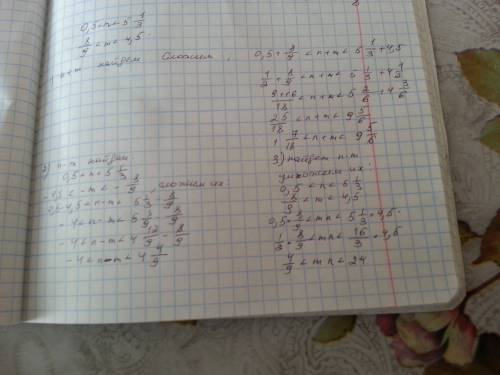 0,5 < n < 5 1/3
8/9 < m < 4,5.
n+m найдем сложим,
0,5 + 8/9 < n+m < 5 1/3 + 4,5
1/2 + 8/9 < n+m < 5 1/3 + 4 1/2
9+16/18 < n+m < 5 2/6 + 4 3/6
25/18 < n+m < 9 5/6
1 7/18 < n+m < 9 5/6
2) n-m найдем
0,5 < n < 5 1/3
-4,5 < -m < -8/9, сложим их:
0,5-4,5 < n-m < 5 1/3 - 8/9
-4 < n-m < 5 3/9 - 8/9
-4 < n-m < 4 12/9 - 8/9
-4 < n-m < 4 4/9
3) найдем n·m
умножаем их:
0,5 < n < 5 1/3
8/9 < m < 4,5
0,5 · 8/9 < mn < 5 1/3 · 4,5.
· 8/9 < mn < 16/3 · 4,5
4/9 < mn < 24